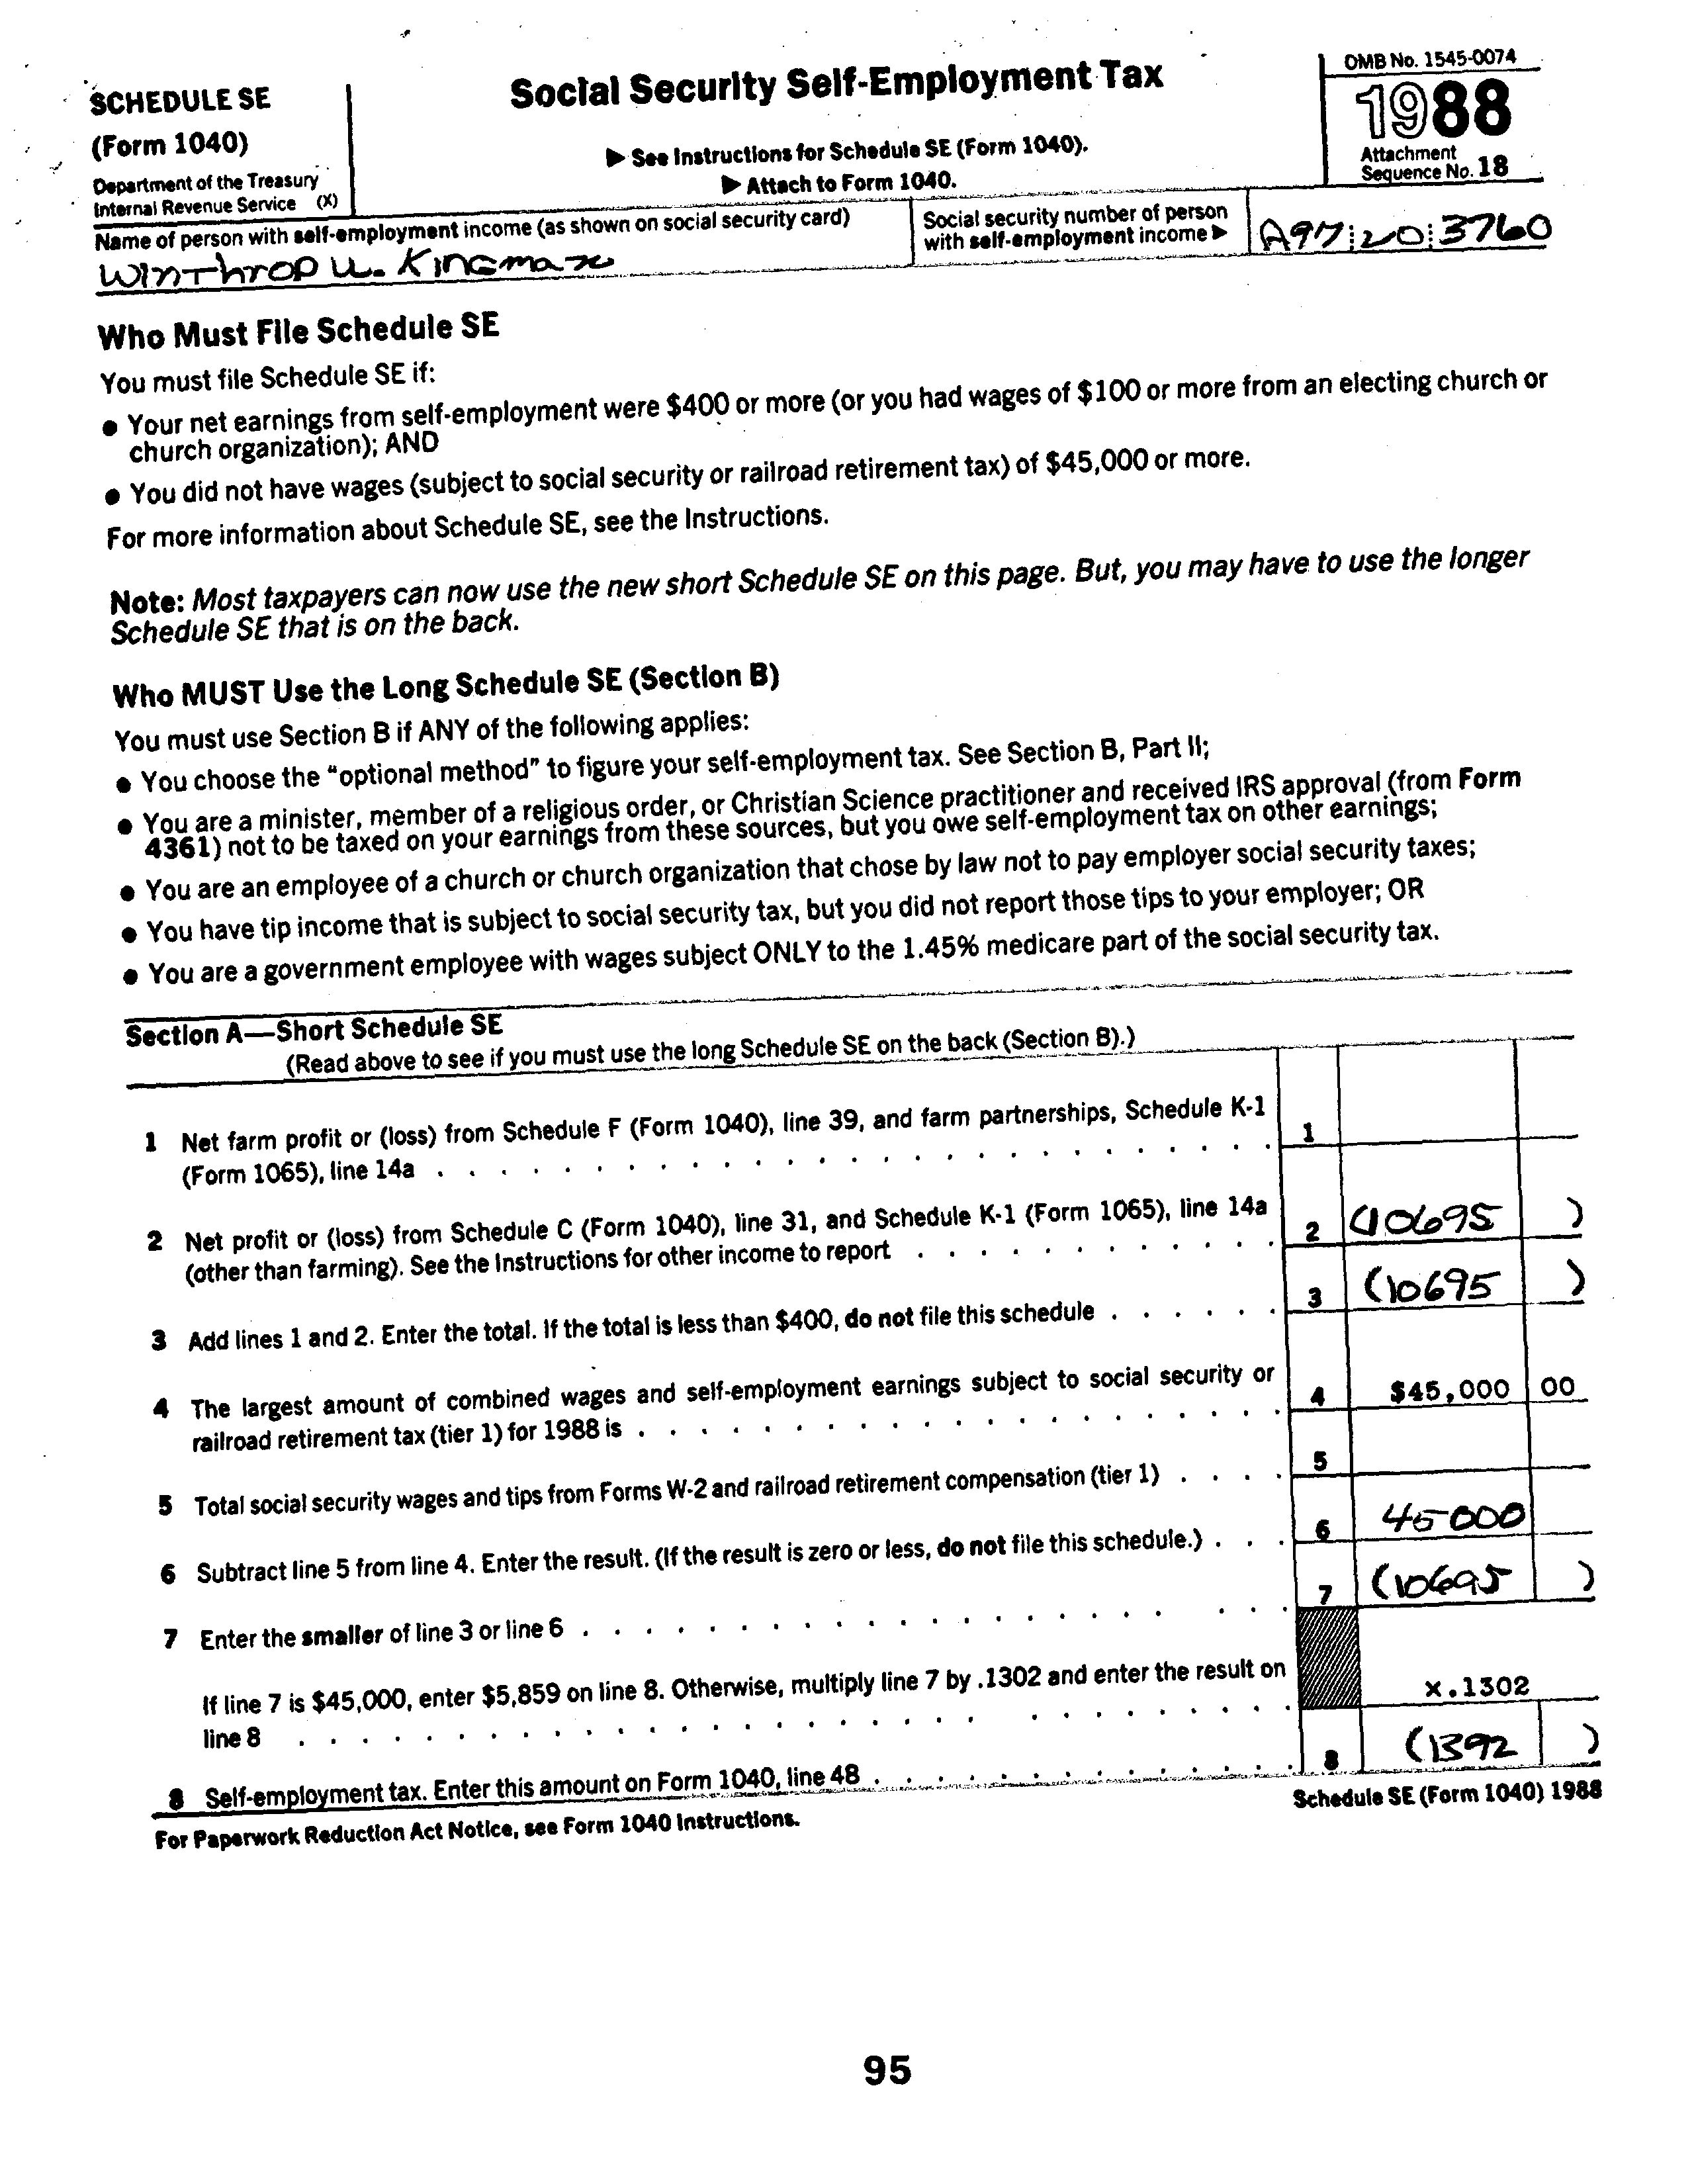 SCHEDULE SE
(Form 1040)
Department of the Treasury
Internal Revenue Service (X)
Social Security Self-Employment Tax
▶ See Instructions for Schedule SE (Form 1040).
▶ Attach to Form 1040.
OMB No. 1545-0074
1988
Attachment
Sequence No. 18
Name of person with self-employment income (as shown on social security card)
Winthrop U. Kingman
Social security number of person
with self-employment income ▶
A97 20 3760
Who Must File Schedule SE
You must file Schedule SE if:
● Your net earnings from self-employment were $400 or more (or you had wages of $100 or more from an electing church or
church organization); AND
● You did not have wages (subject to social security or railroad retirement tax) of $45,000 or more.
For more information about Schedule SE, see the Instructions.
Note: Most taxpayers can now use the new short Schedule SE on this page. But, you may have to use the longer
Schedule SE that is on the back.
Who MUST Use the Long Schedule SE (Section B)
You must use Section B if ANY of the following applies:
● You choose the "optional method" to figure your self-employment tax. See Section B, Part II;
● You are a minister, member of a religious order, or Christian Science practitioner and received IRS approval (from Form
4361) not to be taxed on your earnings from these sources, but you owe self-employment tax on other earnings;
● You are an employee of a church or church organization that chose by law not to pay employer social security taxes;
● You have tip income that is subject to social security tax, but you did not report those tips to your employer; OR
● You are a government employee with wages subject ONLY to the 1.45% medicare part of the social security tax.
Section A—Short Schedule SE
(Read above to see if you must use the long Schedule SE on the back (Section B).)
1 Net farm profit or (loss) from Schedule F (Form 1040), line 39, and farm partnerships, Schedule K-1
(Form 1065), line 14a . . . . . 1
2 Net profit or (loss) from Schedule C (Form 1040), line 31, and Schedule K-1 (Form 1065), line 14a
(other than farming). See the Instructions for other income to report . . . . . 2 (10695 )
3 Add lines 1 and 2. Enter the total. If the total is less than $400, do not file this schedule . . . . . 3 (10695 )
4 The largest amount of combined wages and self-employment earnings subject to social security or
railroad retirement tax (tier 1) for 1988 is . . . . . 4 $45,000 00
5 Total social security wages and tips from Forms W-2 and railroad retirement compensation (tier 1) . . . . 5
6 Subtract line 5 from line 4. Enter the result. (If the result is zero or less, do not file this schedule.) . . . 6 45000
7 Enter the smaller of line 3 or line 6 . . . . . 7 (10695 )
If line 7 is $45,000, enter $5,859 on line 8. Otherwise, multiply line 7 by .1302 and enter the result on
line 8 . . . . . x.1302
8 Self-employment tax. Enter this amount on Form 1040, line 48 . . . . . 8 (1392 )
For Paperwork Reduction Act Notice, see Form 1040 Instructions.
Schedule SE (Form 1040) 1988
95